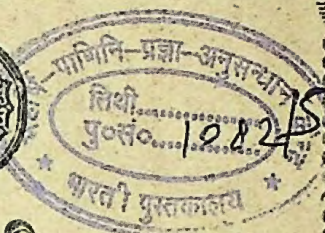 पाणिनि-प्रज्ञा-अनुसन्धान
तिथी..............
पु०सं०..............
1082/5
भारती पुस्तकालय